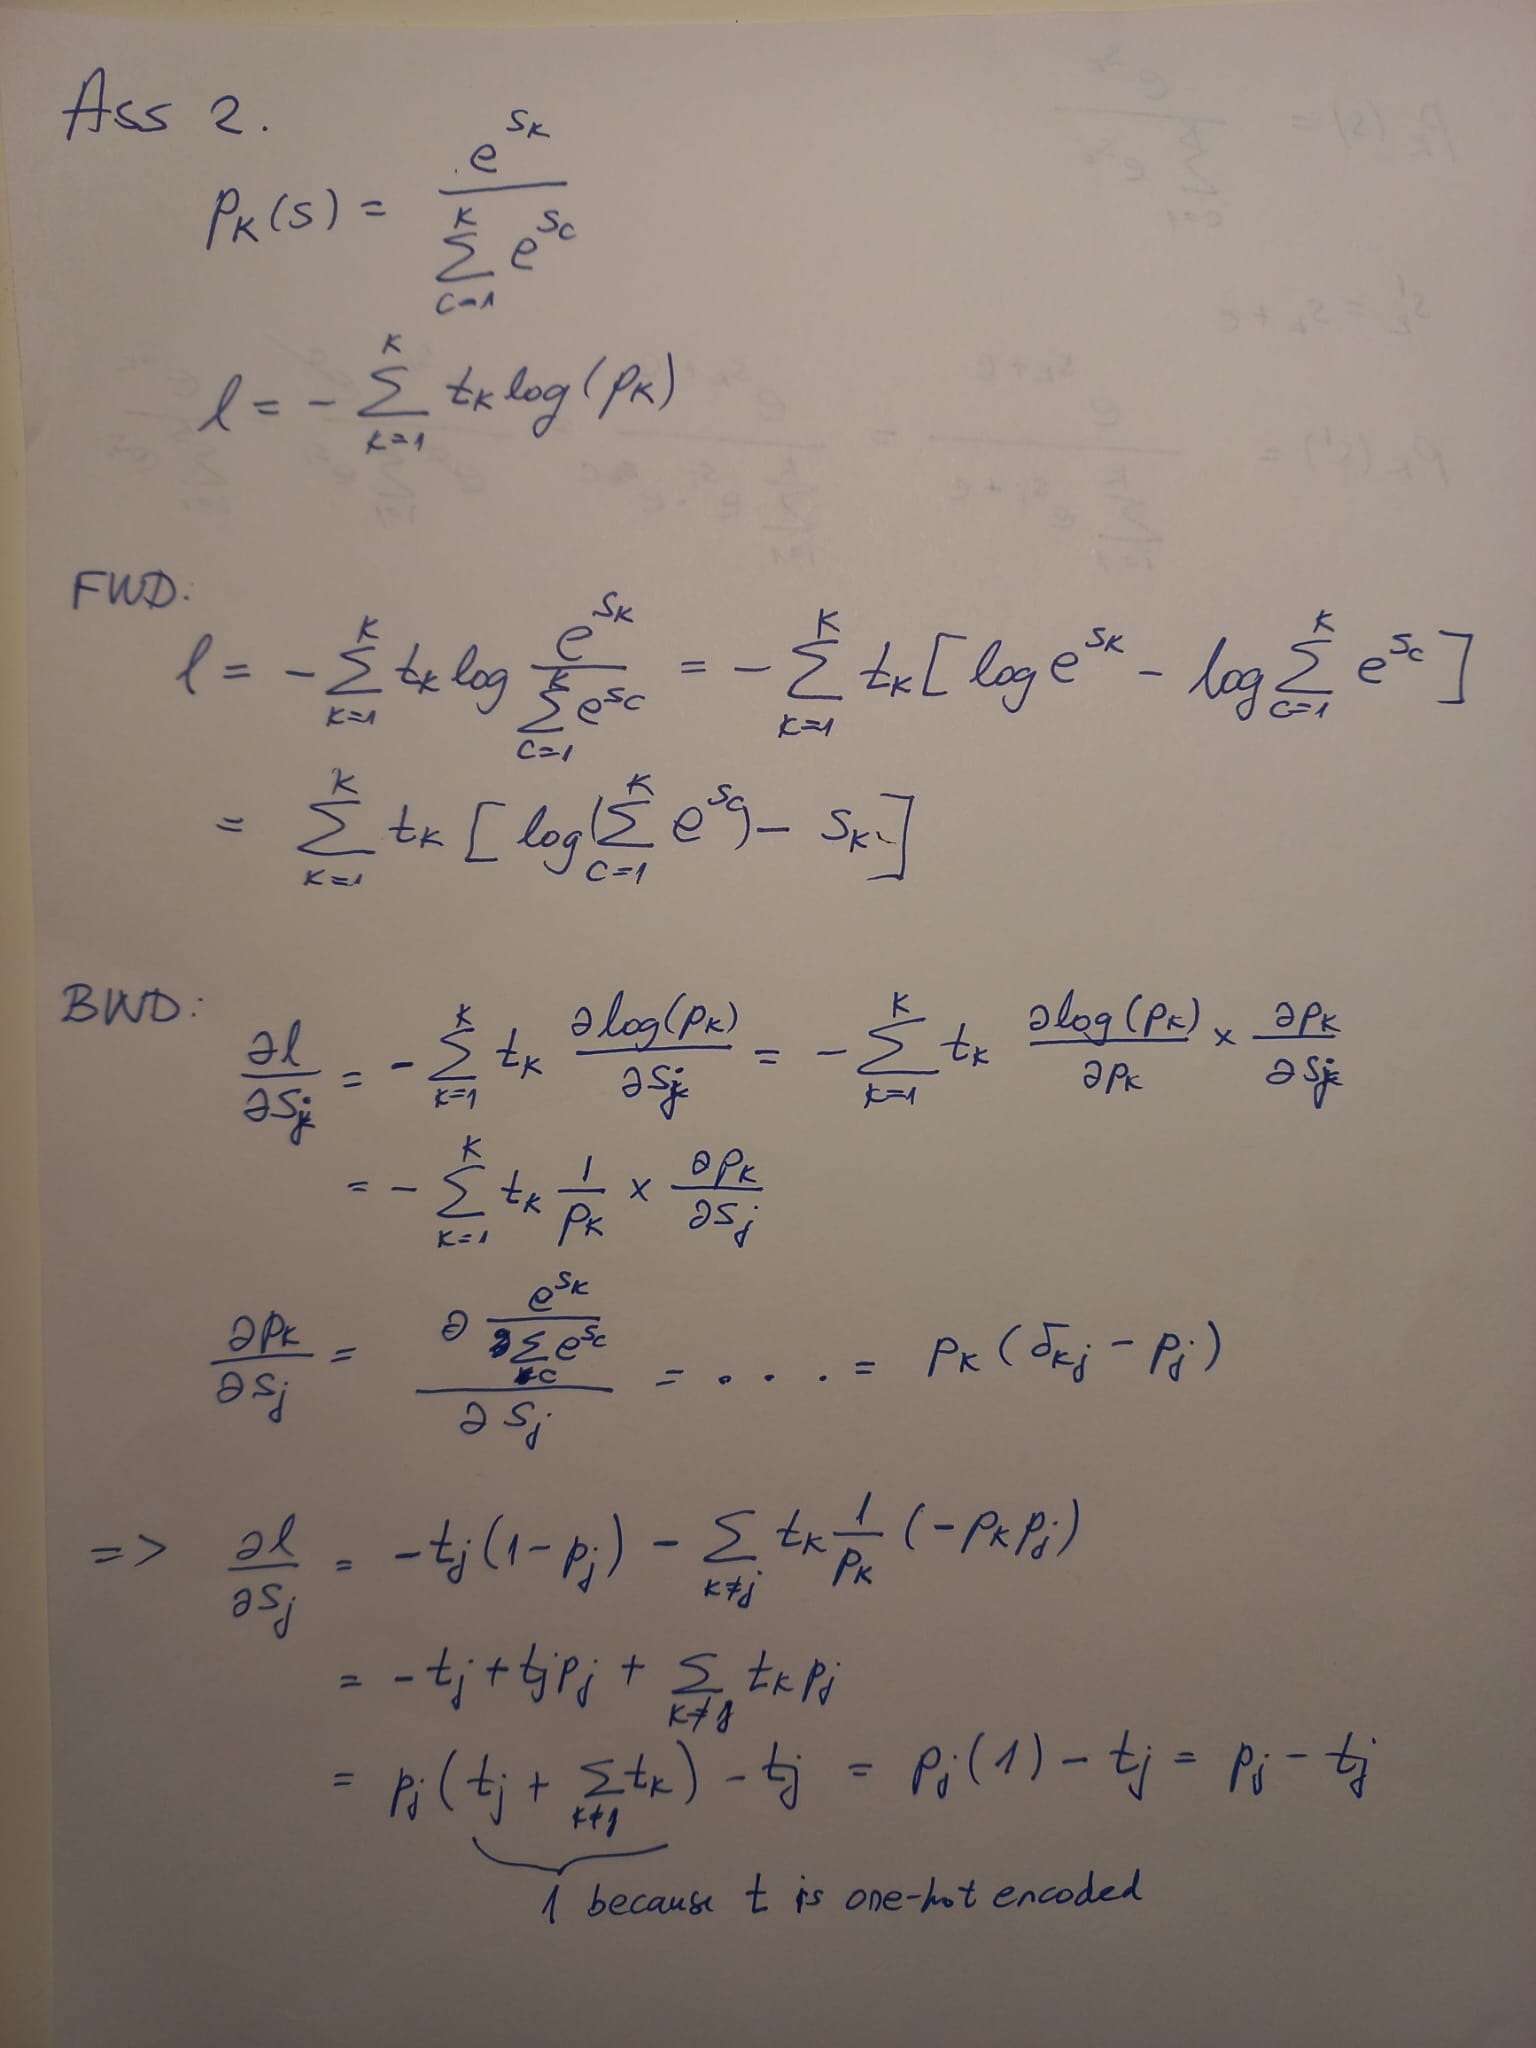 Ass 2.
p_K(s) = e^{s_K} / \sum_{c=1}^{K} e^{s_c}
l = - \sum_{k=1}^{K} t_K log(p_K)
FWD:
l = - \sum_{k=1}^{K} t_K log e^{s_K} / \sum_{c=1}^{K} e^{s_c} = - \sum_{k=1}^{K} t_K [ log e^{s_K} - log \sum_{c=1}^{K} e^{s_c} ]
= \sum_{k=1}^{K} t_K [ log(\sum_{c=1}^{K} e^{s_c}) - s_K ]
BWD:
∂l/∂s_j = - \sum_{k=1}^{K} t_K ∂log(p_K)/∂s_j = - \sum_{k=1}^{K} t_K ∂log(p_K)/∂p_K × ∂p_K/∂s_j
= - \sum_{k=1}^{K} t_K 1/p_K × ∂p_K/∂s_j
∂p_K/∂s_j = ∂ (e^{s_K} / \sum_c e^{s_c}) / ∂s_j = .... = p_K (δ_{Kj} - p_j)
=> ∂l/∂s_j = -t_j(1-p_j) - \sum_{k≠j} t_K 1/p_K (-p_K p_j)
= -t_j + t_j p_j + \sum_{k≠j} t_K p_j
= p_j (t_j + \sum_{k≠j} t_K) - t_j = p_j(1) - t_j = p_j - t_j
1 because t is one-hot encoded